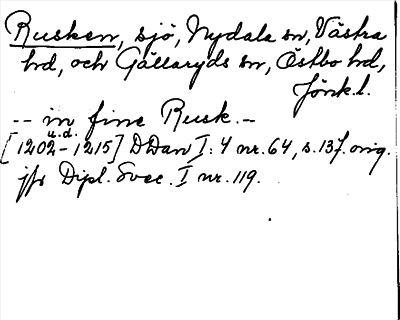 Rusken, sjö, Nydala sn, Västra
hd, och Gällaryds sn, Östbo hd,
Jönk.l.
-- in fine Rusk. --
u.d.
[1202-1215] DDan I:4 nr.64, s.137. orig.
jfr Dipl. Svec. I nr. 119.